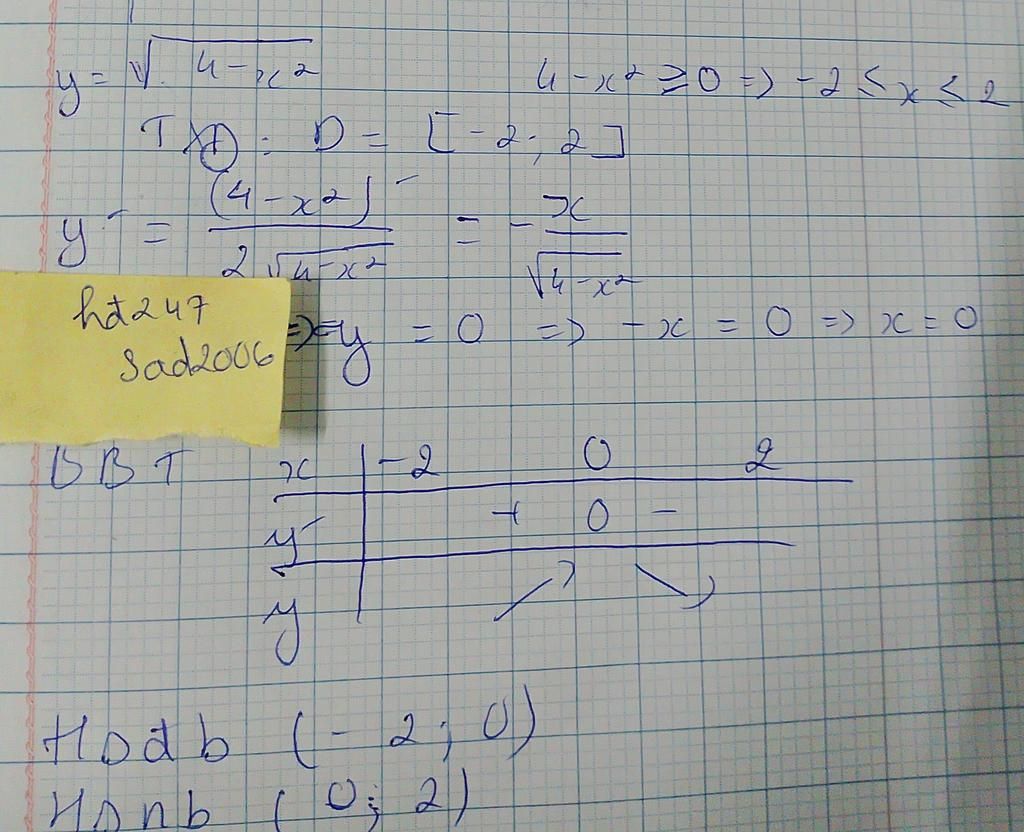 y = √4-x²    4-x² ≥ 0 => -2 ≤ x ≤ 2
TXĐ : D = [-2; 2]
y' = (4-x²)' / 2√4-x² = - x / √4-x²
hd247
sad2006
=> y = 0 => -x = 0 => x = 0
BBT x | -2 0 2
y' | + 0 -
y | ↗ ↘
HSđb (-2; 0)
HSnb (0; 2)